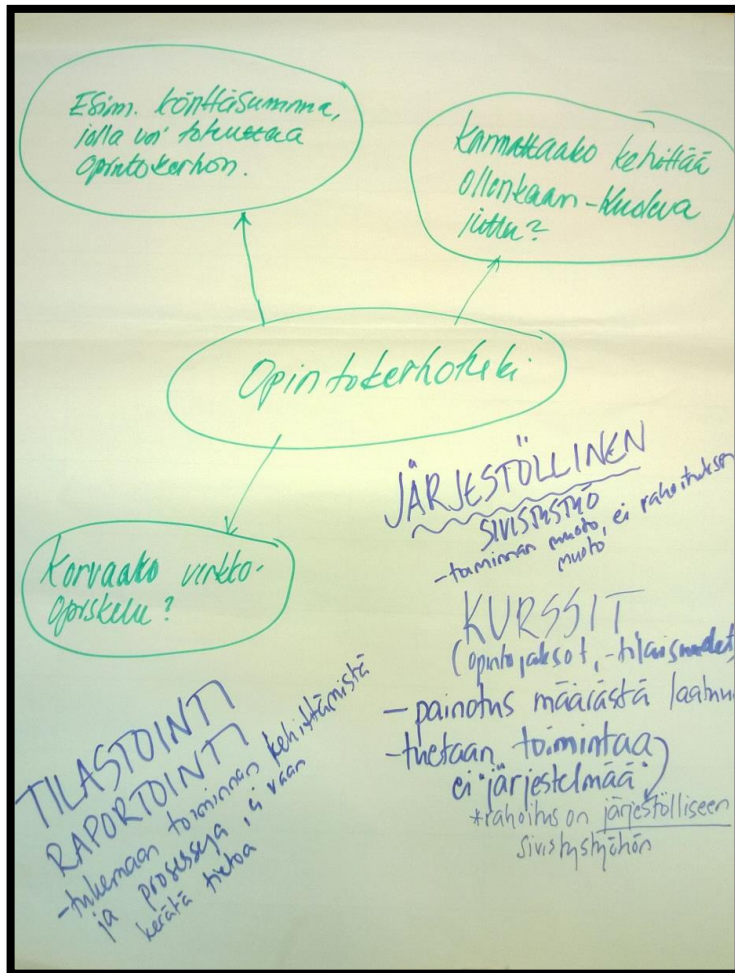 Esim. könttäsumma,
jolla voi toteuttaa
opintokerhon.
Kannattaako kehittää
ollenkaan - Kuoleva
juttu?
Opintokerhotuki
Korvaako verkko-
opiskelu?
JÄRJESTÖLLINEN
SIVISTYSTYÖ
- toiminnan muoto, ei rahoituksen
muoto
KURSSIT
(opintojaksot, -tilaisuudet,
- painotus määrästä laatuun
- tuetaan toimintaa
ei "järjestelmää"
*rahoitus on järjestölliseen
sivistystyöhön
TILASTOINTI
RAPORTOINTI
- tukemaan toiminnan kehittämistä
ja prosesseja, ei vaan
kerätä tietoa